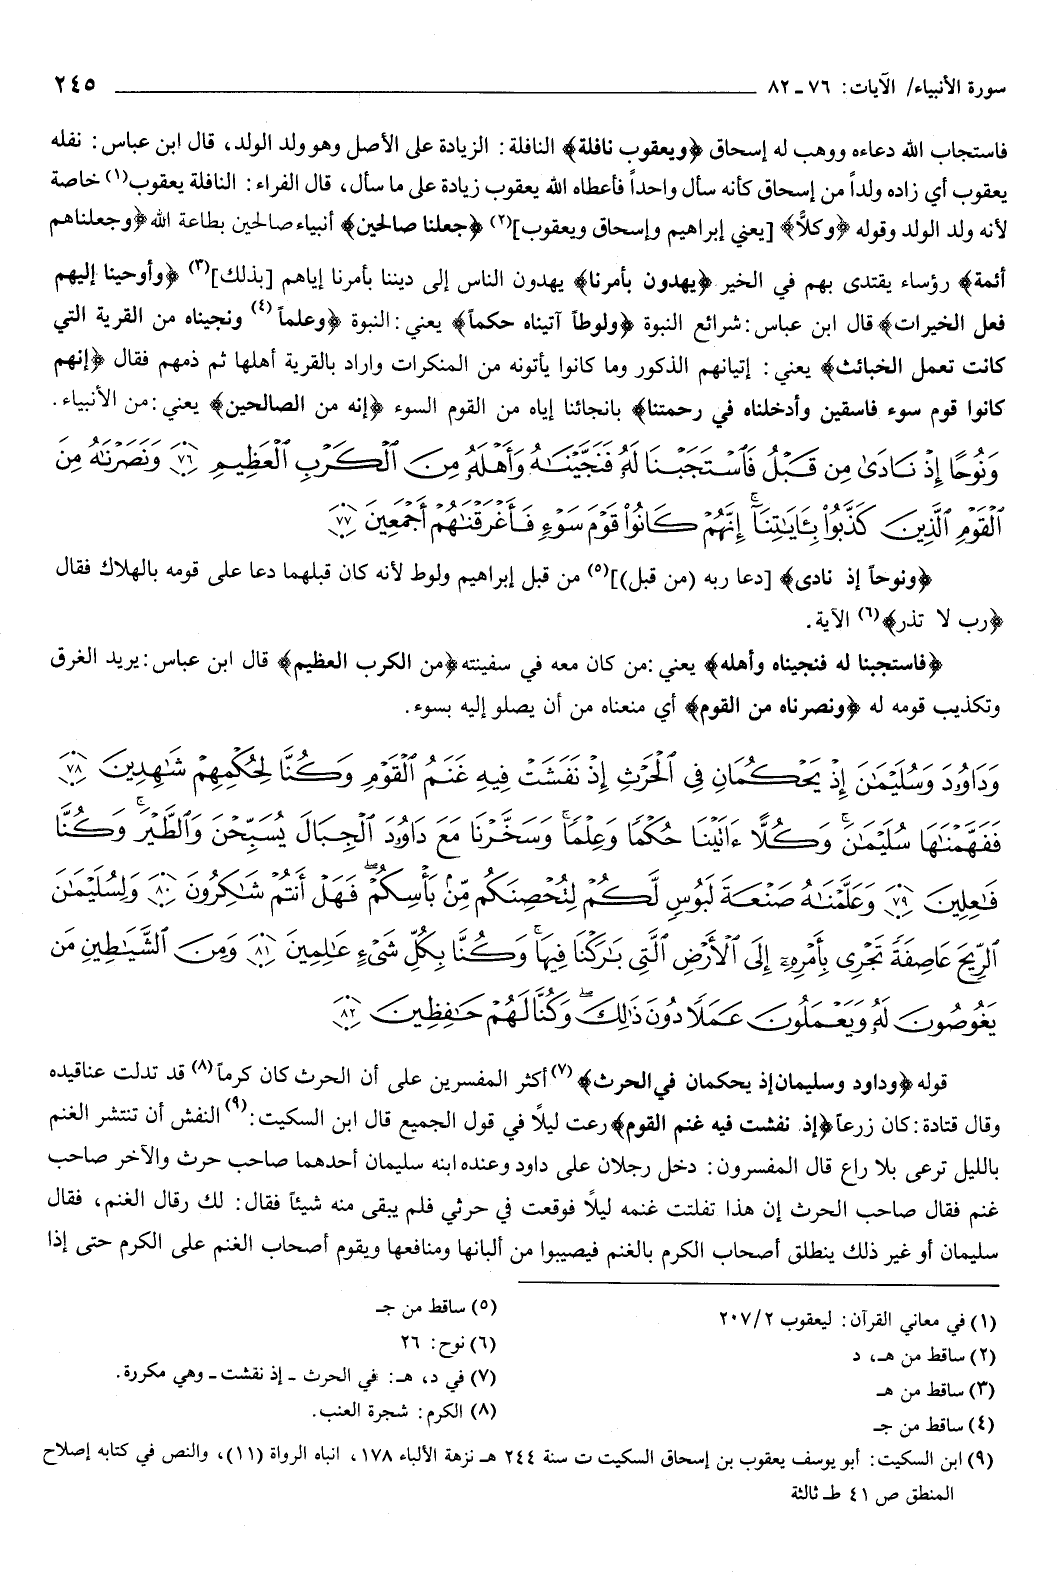 سورة الأنبياء/ الآيات: ٧٦ ـ ٨٢ ٢٤٥
فاستجاب الله دعاءه ووهب له إسحاق ﴿ويعقوب نافلة﴾ النافلة: الزيادة على الأصل وهو ولد الولد، قال ابن عباس: نفله
يعقوب أي زاده ولداً من إسحاق كأنه سأل واحداً فأعطاه الله يعقوب زيادة على ما سأل، قال الفراء: النافلة يعقوب(١) خاصة
لأنه ولد الولد وقوله ﴿وكلًّا﴾ [يعني إبراهيم وإسحاق ويعقوب](٢) ﴿جعلنا صالحين﴾ أنبياء صالحين بطاعة الله ﴿وجعلناهم
أئمة﴾ رؤساء يقتدى بهم في الخير ﴿يهدون بأمرنا﴾ يهدون الناس إلى ديننا بأمرنا إياهم [بذلك](٣) ﴿وأوحينا إليهم
فعل الخيرات﴾ قال ابن عباس: شرائع النبوة ﴿ولوطاً آتيناه حكماً﴾ يعني: النبوة ﴿وعلماً(٤) ونجيناه من القرية التي
كانت تعمل الخبائث﴾ يعني: إتيانهم الذكور وما كانوا يأتونه من المنكرات واراد بالقرية أهلها ثم ذمهم فقال ﴿إنهم
كانوا قوم سوء فاسقين وأدخلناه في رحمتنا﴾ بانجائنا إياه من القوم السوء ﴿إنه من الصالحين﴾ يعني: من الأنبياء.
وَنُوحًا إِذْ نَادَىٰ مِن قَبْلُ فَٱسْتَجَبْنَا لَهُۥ فَنَجَّيْنَـٰهُ وَأَهْلَهُۥ مِنَ ٱلْكَرْبِ ٱلْعَظِيمِ ٧٦ وَنَصَرْنَـٰهُ مِنَ
ٱلْقَوْمِ ٱلَّذِينَ كَذَّبُواْ بِـَٔايَـٰتِنَآ ۚ إِنَّهُمْ كَانُواْ قَوْمَ سَوْءٍ فَأَغْرَقْنَـٰهُمْ أَجْمَعِينَ ٧٧
﴿ونوحاً إذ نادى﴾ [دعا ربه (من قبل)](٥) من قبل إبراهيم ولوط لأنه كان قبلهما دعا على قومه بالهلاك فقال
﴿رب لا تذر﴾(٦) الآية.
﴿فاستجبنا له فنجيناه وأهله﴾ يعني: من كان معه في سفينته ﴿من الكرب العظيم﴾ قال ابن عباس: يريد الغرق
وتكذيب قومه له ﴿ونصرناه من القوم﴾ أي منعناه من أن يصلو إليه بسوء.
وَدَاوُۥدَ وَسُلَيْمَـٰنَ إِذْ يَحْكُمَانِ فِى ٱلْحَرْثِ إِذْ نَفَشَتْ فِيهِ غَنَمُ ٱلْقَوْمِ وَكُنَّا لِحُكْمِهِمْ شَـٰهِدِينَ ٧٨
فَفَهَّمْنَـٰهَا سُلَيْمَـٰنَ ۚ وَكُلًّا ءَاتَيْنَا حُكْمًا وَعِلْمًا ۚ وَسَخَّرْنَا مَعَ دَاوُۥدَ ٱلْجِبَالَ يُسَبِّحْنَ وَٱلطَّيْرَ ۚ وَكُنَّا
فَـٰعِلِينَ ٧٩ وَعَلَّمْنَـٰهُ صَنْعَةَ لَبُوسٍ لَّكُمْ لِتُحْصِنَكُم مِّنۢ بَأْسِكُمْ ۖ فَهَلْ أَنتُمْ شَـٰكِرُونَ ٨٠ وَلِسُلَيْمَـٰنَ
ٱلرِّيحَ عَاصِفَةً تَجْرِى بِأَمْرِهِۦٓ إِلَى ٱلْأَرْضِ ٱلَّتِى بَـٰرَكْنَا فِيهَا ۚ وَكُنَّا بِكُلِّ شَىْءٍ عَـٰلِمِينَ ٨١ وَمِنَ ٱلشَّيَـٰطِينِ مَن
يَغُوصُونَ لَهُۥ وَيَعْمَلُونَ عَمَلًا دُونَ ذَٰلِكَ ۖ وَكُنَّا لَهُمْ حَـٰفِظِينَ ٨٢
قوله ﴿وداود وسليمان إذ يحكمان في الحرث﴾(٧) أكثر المفسرين على أن الحرث كان كرماً(٨) قد تدلت عناقيده
وقال قتادة: كان زرعاً ﴿إذ نفشت فيه غنم القوم﴾ رعت ليلًا في قول الجميع قال ابن السكيت:(٩) النفش أن تنتشر الغنم
بالليل ترعى بلا راع قال المفسرون: دخل رجلان على داود وعنده ابنه سليمان أحدهما صاحب حرث والآخر صاحب
غنم فقال صاحب الحرث إن هذا تفلتت غنمه ليلًا فوقعت في حرثي فلم يبقى منه شيئاً فقال: لك رقال الغنم، فقال
سليمان أو غير ذلك ينطلق أصحاب الكرم بالغنم فيصيبوا من ألبانها ومنافعها ويقوم أصحاب الغنم على الكرم حتى إذا
(١) في معاني القرآن: ليعقوب ٢٠٧/٢
(٢) ساقط من هـ، د
(٣) ساقط من هـ
(٤) ساقط من جـ
(٥) ساقط من جـ
(٦) نوح: ٢٦
(٧) في د، هـ: في الحرث ـ إذ نفشت ـ وهي مكررة.
(٨) الكرم: شجرة العنب.
(٩) ابن السكيت: أبو يوسف يعقوب بن إسحاق السكيت ت سنة ٢٤٤ هـ نزهة الألباء ١٧٨، انباه الرواة (١١)، والنص في كتابه إصلاح
المنطق ص ٤١ طـ ثالثة